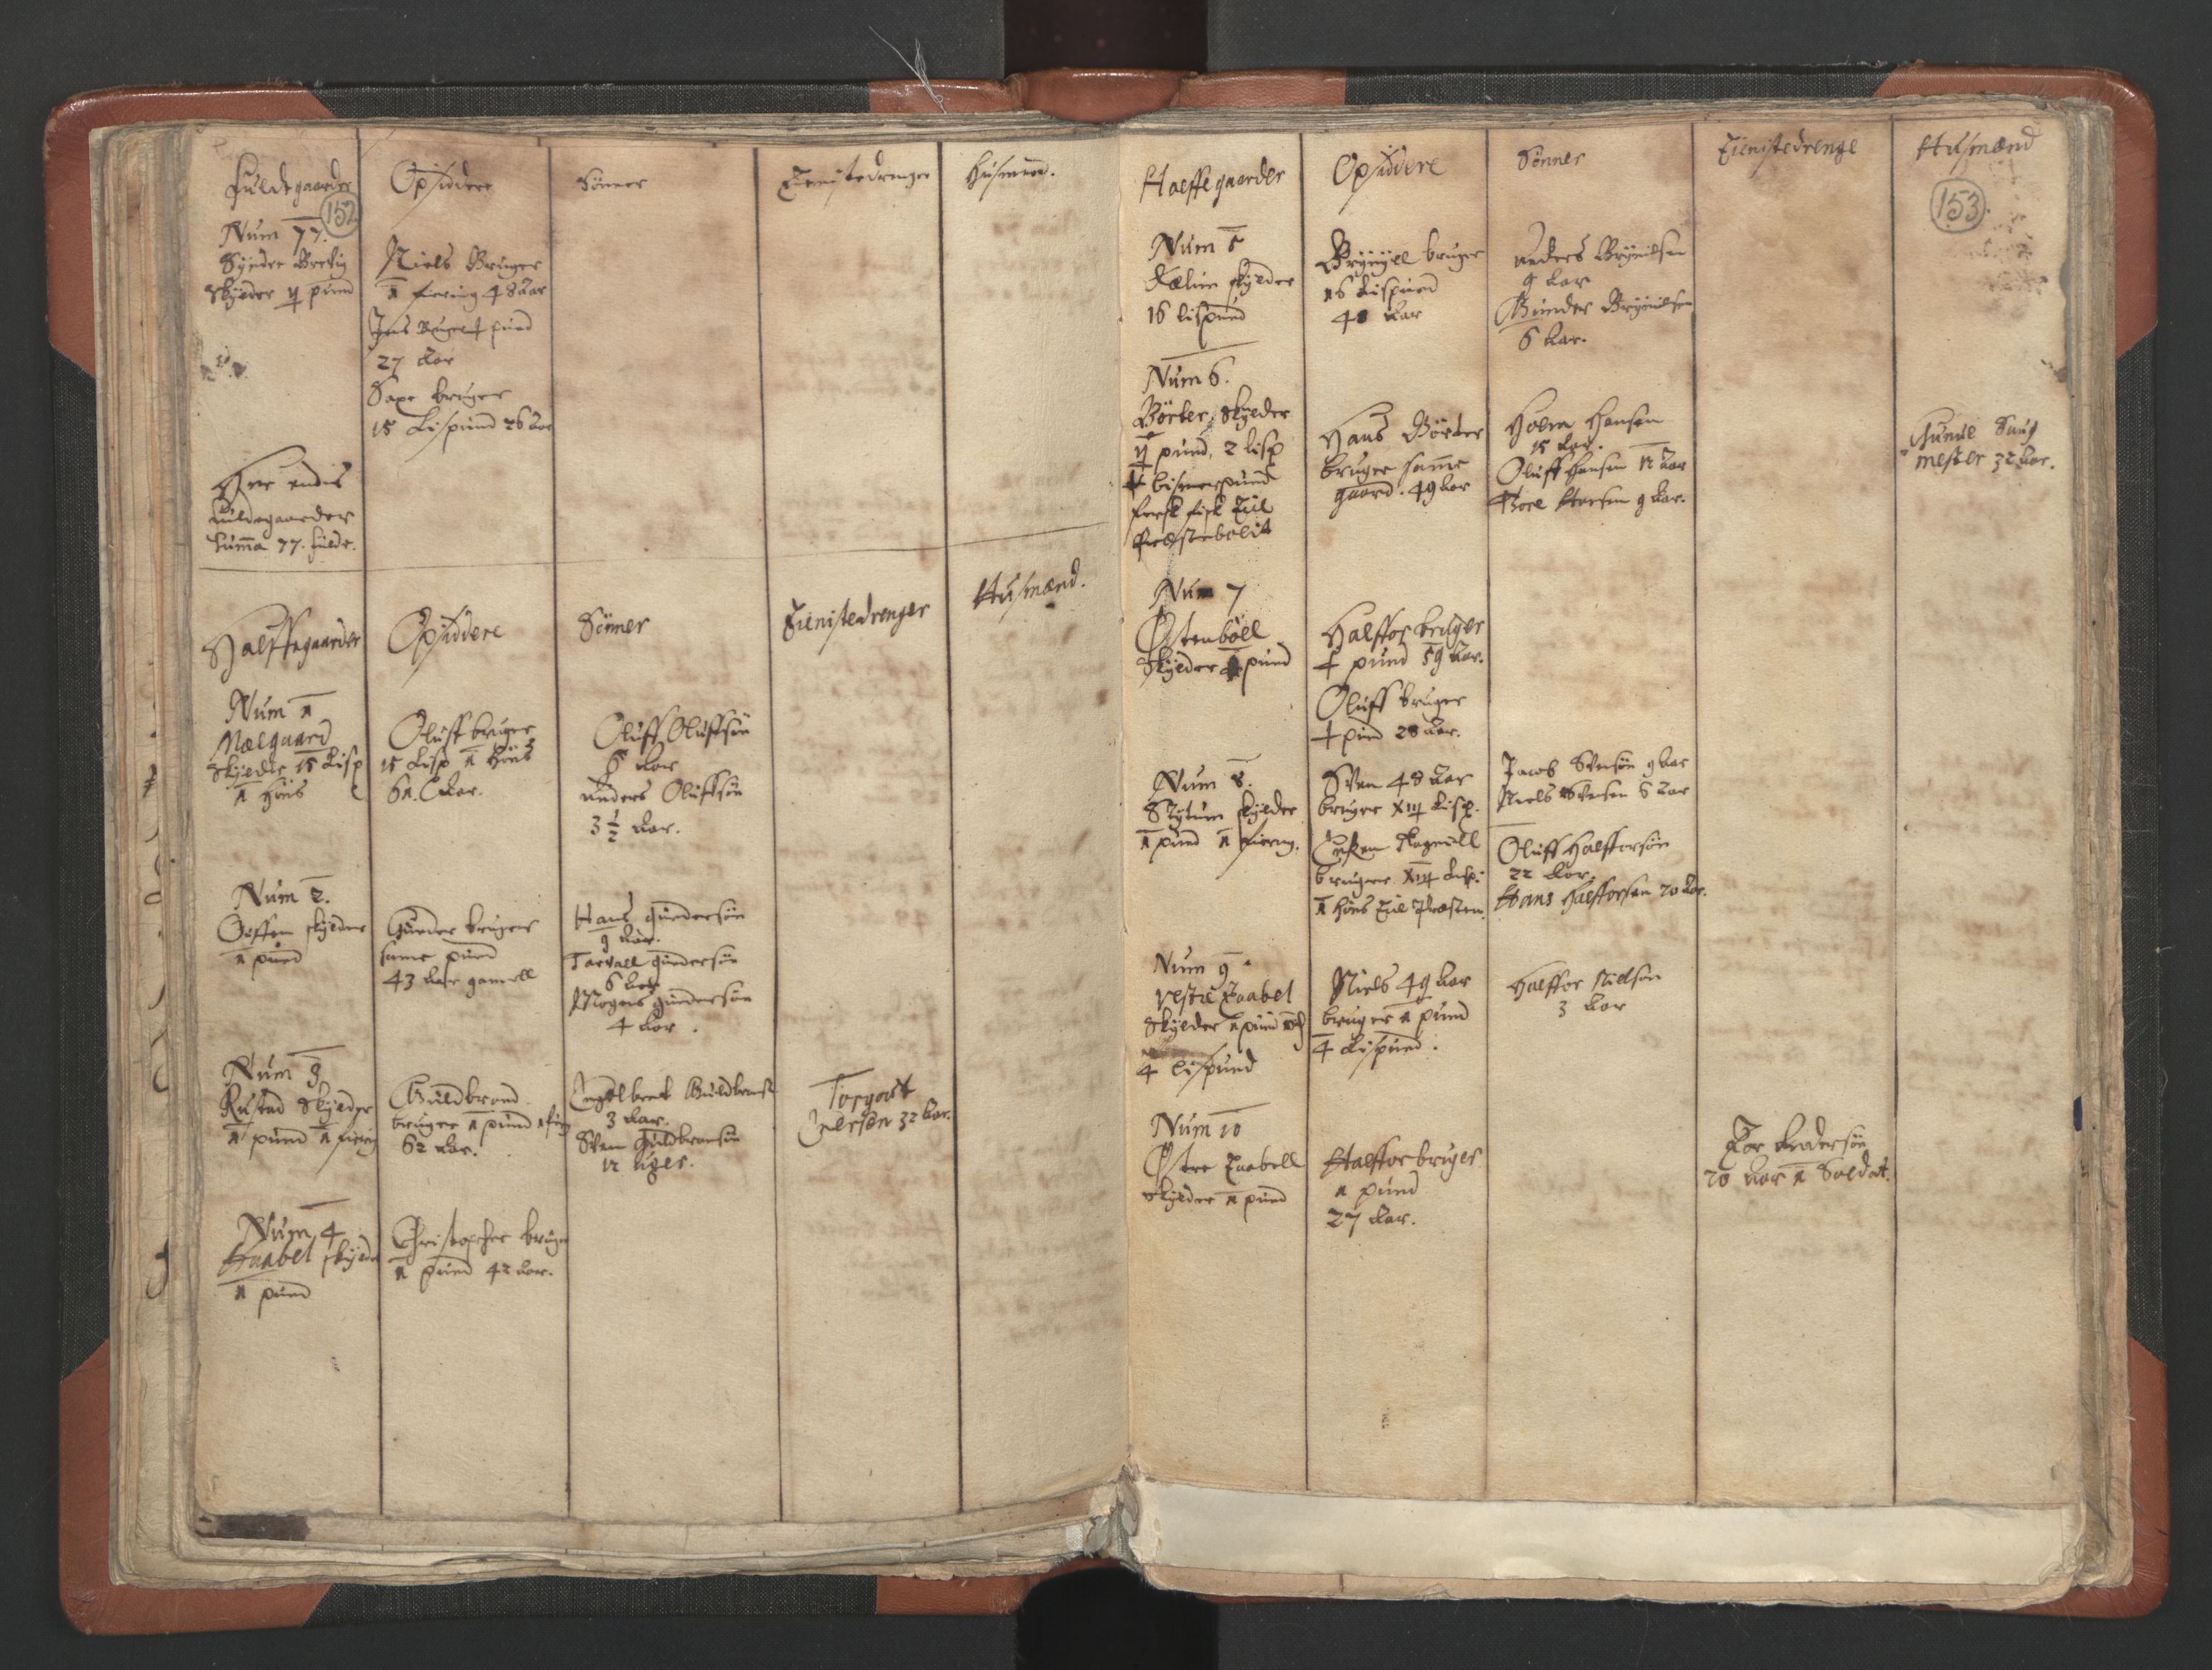 Fuldegaarder
Opsiddere
Sönner
Tienistedrenger
Husmend.
152
Num 77.
Syndre Brevig
Skylder ij pund
Niels Bruger
1 fiering 48 Aar
Jens Bruger ½ pund
27 Aar
Saxe bruger
15 Lispund 26 Aar
Her endis
fuldegaarder
Summa 77. fulde.
Halffegaarder
Opsiddere
Sönner
Tienistedrenger
Husmænd.
Num 1
Melgaard
Skylder 15 Lisp
1 Höns
Oluff bruger
15 Lisp 1 Höns
61. Aar.
Oluff Oluffsön
6 Aar
Anders Oluffsön
3½ Aar.
Num 2.
skylder
1 pund
Gunder bruger
same pund
43 Aar gamell
Hans Gundersön
9 Aar.
Tarvall Gundersön
6 Aar
Mogens Gundersön
4 Aar.
Num 3
Rustad Skylder
1 pund 1 fiering
Guldbrand
bruger 1 pund 1 fiering
62 Aar.
Engelbret Guldbrands
3 Aar.
Sven Guldbransön
12 Uger.
Torgout
Iversen 32 Aar.
Num 4
Haabel skylder
1 pund
Christopher bruger
1 pund 42 Aar.
Halffegaarder
Opsiddere
Sönner
Tienistedrenge
Husmænd
153.
Num 5
Kælim skylder
16 lispund
Bryniell bruger
16 Lispund
48 Aar
Anders Brynilsen
9 Aar
Gunder Brynilsen
6 Aar.
Num 6.
Börter, skylder
ij pund, 2 Lisp
½ bismerpund
fersk fisk Til
Præstebolit
Hans Börter
bruger samme
gaard. 49 Aar
Holm Hansen
15 Aar.
Oluff Hansen 12 Aar
Tore Hansen 9 Aar.
Gunde Saug
mester 32 Aar.
Num 7
Östenböll
Skylder 1 pund
Halffor bruger
½ pund 59 Aar.
Oluff bruger
½ pund 28 Aar.
Num 8.
Slytum skylder
1 pund 1 fiering.
Sven 48 Aar
bruger xiij Lisp.
Jacob Svensön 9 Aar
Niels Svensen 6 Aar
Ragnill
bruger xiij Lisp.
1 Höns Til Præsten.
Oluff Halfforsön
22 Aar.
Hans Halfforsen 20 Aar.
Num 9.
Vestre Taabel
Skylder 1 pund
4 lispund
Niels 49 Aar
bruger 1 pund
4 Lispund.
Halffor Nielsön
3 Aar
Num 10
Östre Taabell
Skylder 1 pund
Halffor bruger
1 pund
27 Aar.
Tor Andersön
20 Aar 1 Soldat.